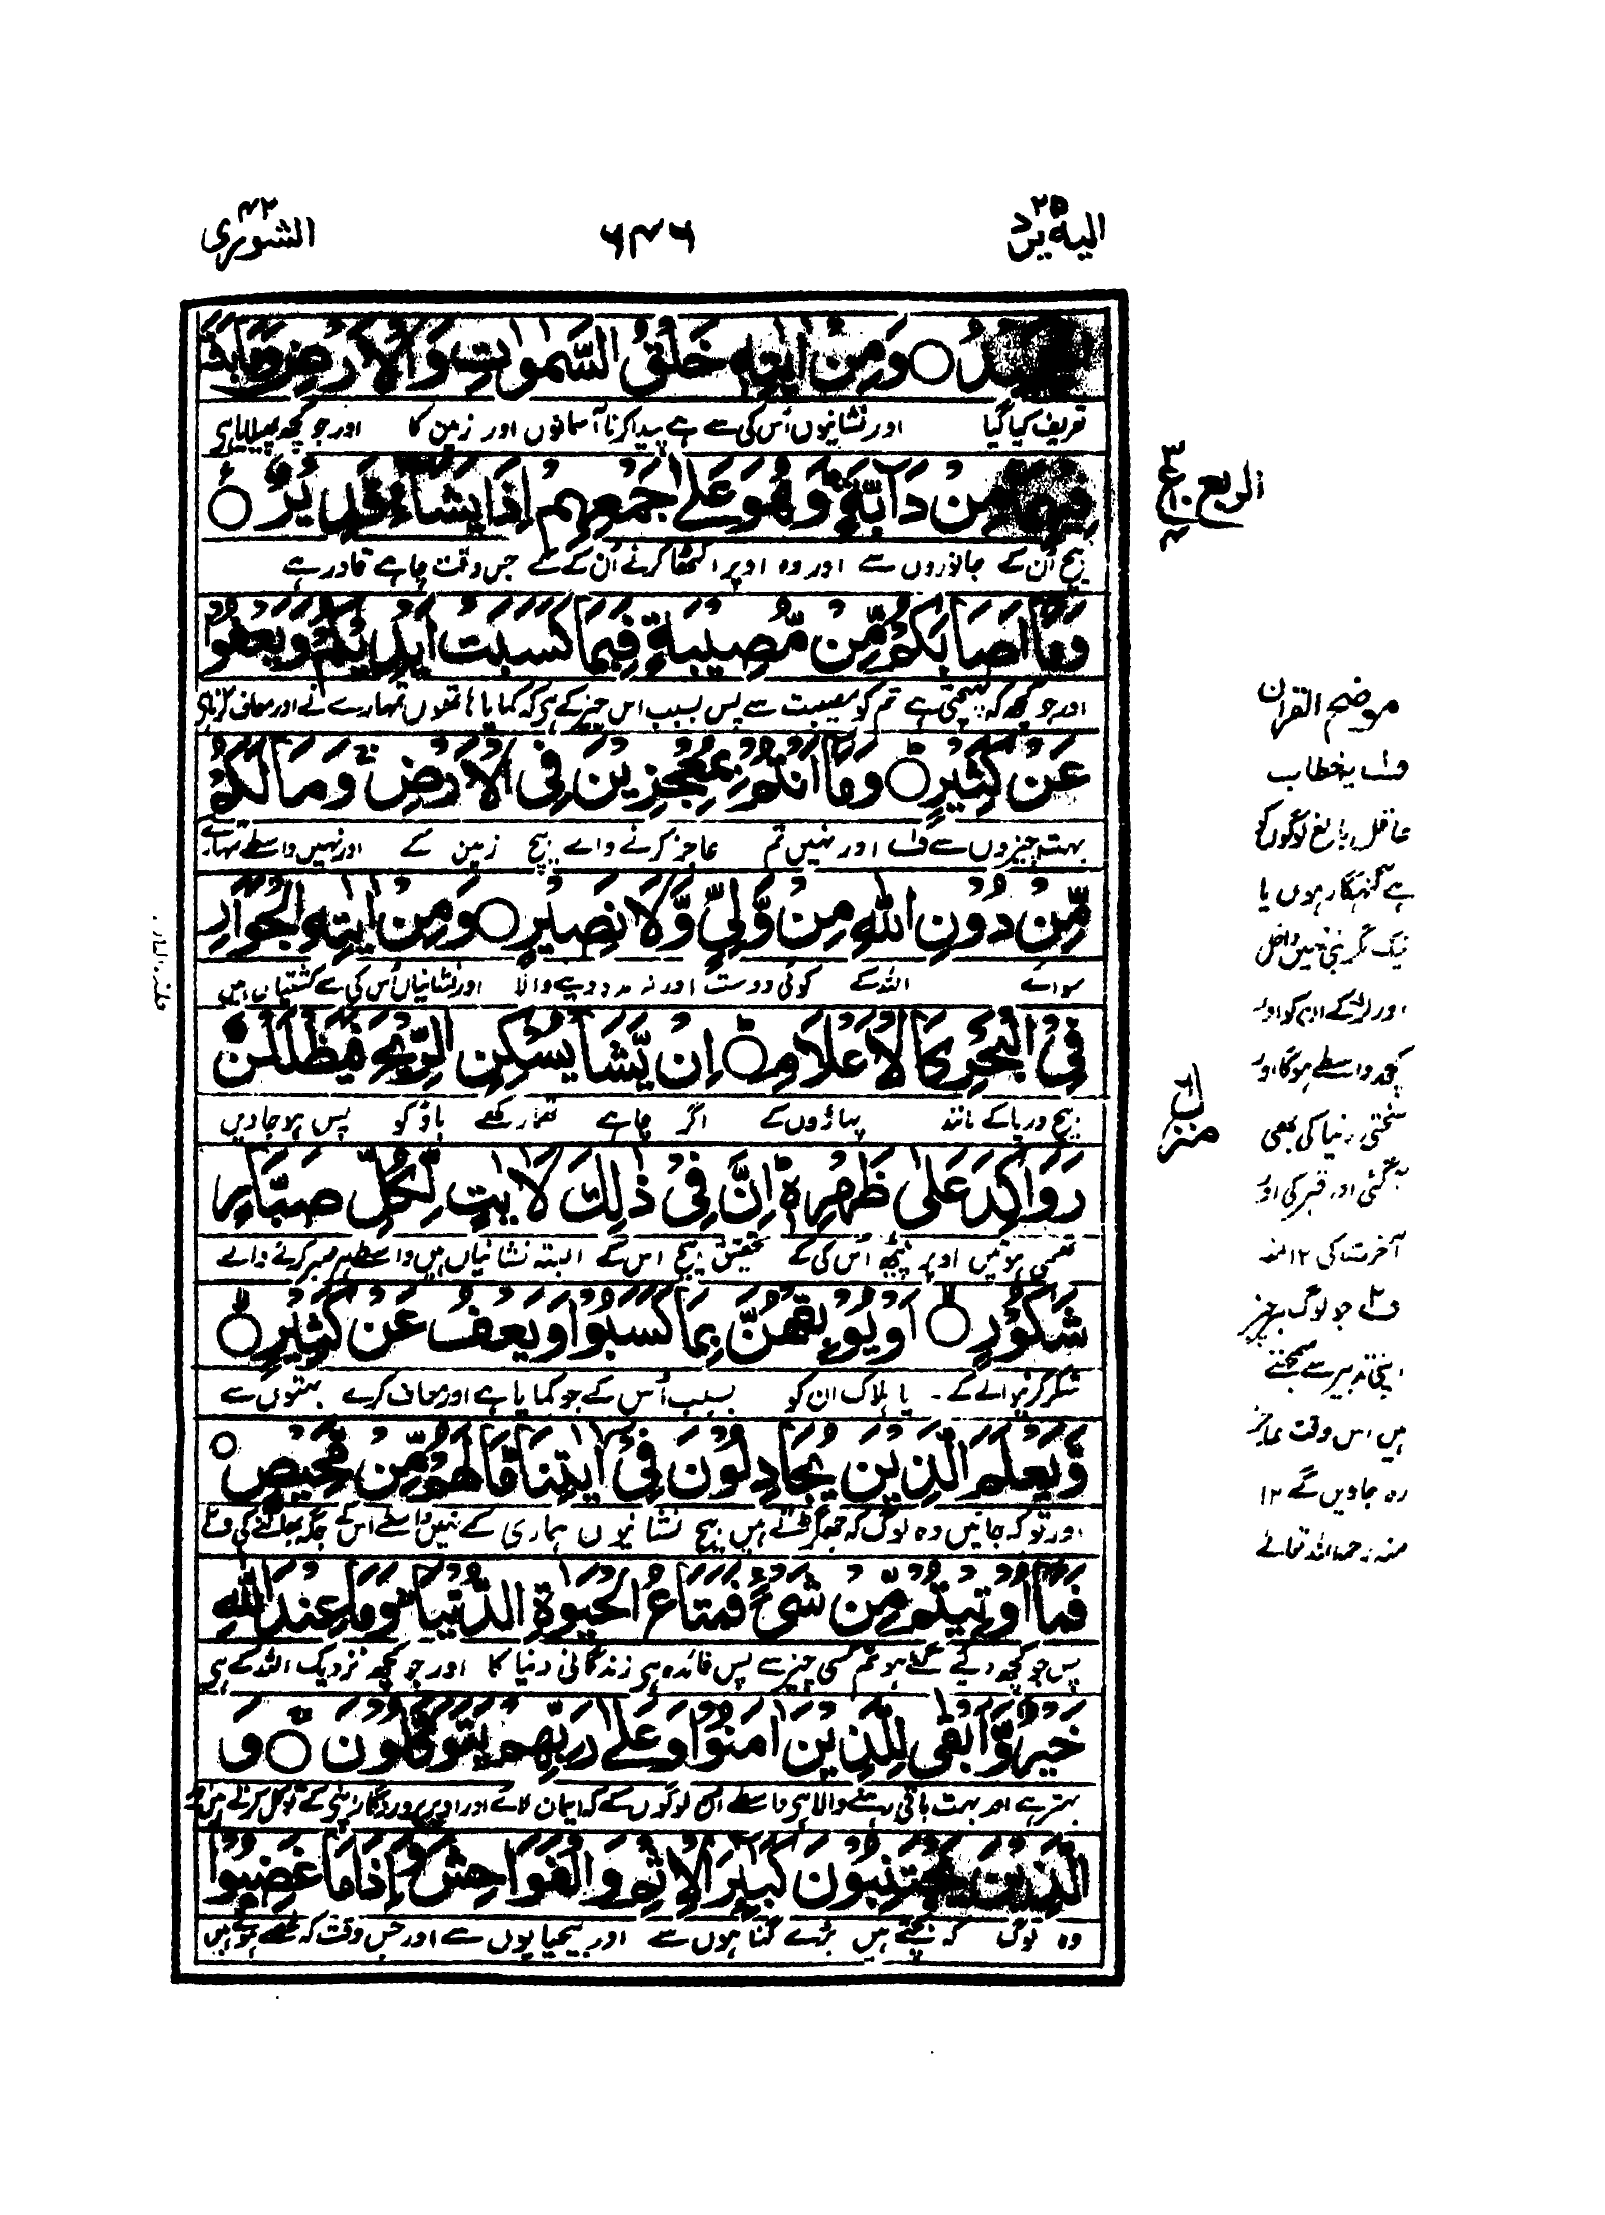 الیه یرد ٢٥
٦٤٦
الشوری ٤٢
الْحَمِیْدُ ○ وَمِنْ اٰیٰتِهٖ خَلْقُ السَّمٰوٰتِ وَالْاَرْضِ وَمَا بَثَّ
تعریف کیا گیا اور نشانیوں اُس کی سے ہے پیدا کرنا آسمانوں اور زمین کا اور جو کچھ پھیلایا ہے
فِیْهِمَا مِنْ دَآبَّةٍ وَهُوَ عَلٰی جَمْعِهِمْ اِذَا یَشَآءُ قَدِیْرٌ ○
بیچ اُن کے جانوروں سے اور وہ اوپر اکٹھا کرنے اُن کے کے جس وقت چاہے قادر ہے
وَمَآ اَصَابَكُمْ مِّنْ مُّصِیْبَةٍ فَبِمَا كَسَبَتْ اَیْدِیْكُمْ وَیَعْفُوْا
اور جو کچھ کہ پہنچتی ہے تم کو مصیبت سے پس بسبب اس چیز کے ہے کہ کمایا ہاتھوں تمہارے نے اور معاف کرتا ہے
عَنْ كَثِیْرٍ ○ وَمَآ اَنْتُمْ بِمُعْجِزِیْنَ فِی الْاَرْضِ وَمَا لَكُمْ
بہت چیزوں سے ف اور نہیں تم عاجز کرنے والے بیچ زمین کے اور نہیں واسطے تمہارے
مِّنْ دُوْنِ اللّٰهِ مِنْ وَّلِیٍّ وَّلَا نَصِیْرٍ ○ وَمِنْ اٰیٰتِهِ الْجَوَارِ
سواے اللہ کے کوئی دوست اور نہ مدد دینے والا اور نشانیاں اُس کی سے کشتیاں ہیں
فِی الْبَحْرِ كَالْاَعْلَامِ ○ اِنْ یَّشَاْ یُسْكِنِ الرِّیْحَ فَیَظْلَلْنَ
بیچ دریا کے مانند پہاڑوں کے اگر چاہے تھما رکھے باؤ کو پس ہو جاویں
رَوَاكِدَ عَلٰی ظَهْرِهٖ اِنَّ فِیْ ذٰلِكَ لَاٰیٰتٍ لِّكُلِّ صَبَّارٍ
تھمی ہوئیں اوپر پیٹھ اُس کی کے تحقیق بیچ اس کے البتہ نشانیاں ہیں واسطے ہر صبر کرنے والے
شَكُوْرٍ ○ اَوْ یُوْبِقْهُنَّ بِمَا كَسَبُوْا وَیَعْفُ عَنْ كَثِیْرٍ ○
شکر کرنیوالے کے ۔ یا ہلاک کرے ان کو بسبب اُس کے جو کمایا ہے اور معاف کرے بہتوں سے
وَّیَعْلَمَ الَّذِیْنَ یُجَادِلُوْنَ فِیْٓ اٰیٰتِنَا مَا لَهُمْ مِّنْ مَّحِیْصٍ ○
اور تو کہ جانیں وہ لوگ کہ جھگڑتے ہیں بیچ نشانیوں ہماری کے نہیں واسطے اُس کے جگہ بھاگنے کی ف
فَمَآ اُوْتِیْتُمْ مِّنْ شَیْءٍ فَمَتَاعُ الْحَیٰوةِ الدُّنْیَا وَمَا عِنْدَ اللّٰهِ
پس جو کچھ دیے گئے ہو تم کسی چیز سے پس فائدہ ہے زندگانی دنیا کا اور جو کچھ نزدیک اللہ کے ہے
خَیْرٌ وَّاَبْقٰی لِلَّذِیْنَ اٰمَنُوْا وَعَلٰی رَبِّهِمْ یَتَوَكَّلُوْنَ ○ وَ
بہتر ہے اور بہت باقی رہنے والا ہے واسطے اُن لوگوں کے کہ ایمان لائے اور اوپر پروردگار اپنے کے توکل کرتے ہیں
الَّذِیْنَ یَجْتَنِبُوْنَ كَبٰٓئِرَ الْاِثْمِ وَالْفَوَاحِشَ وَاِذَا مَا غَضِبُوْا
وہ لوگ کہ بچتے ہیں بڑے گناہوں سے اور بیحیائیوں سے اور جس وقت کہ غصے ہوتے ہیں
الربع
ع
منزل ٦
موضح القرآن
ف یہ خطاب
عاقل بالغ لوگوں کو
ہے گنہگار ہوں یا
نیک مگر نبی نہیں داخل
اور لڑکے
واسطے ہوگا اور
سختی دنیا کی بھی
آ گئی اور قبر کی اور
آخرت کی ١٢ منہ
ف جو لوگ ہر چیز
اپنی تدبیر سے سمجھتے
ہیں اس وقت عاجز
رہ جاویں گے ١٢
منہ رحمہ اللہ تعالے